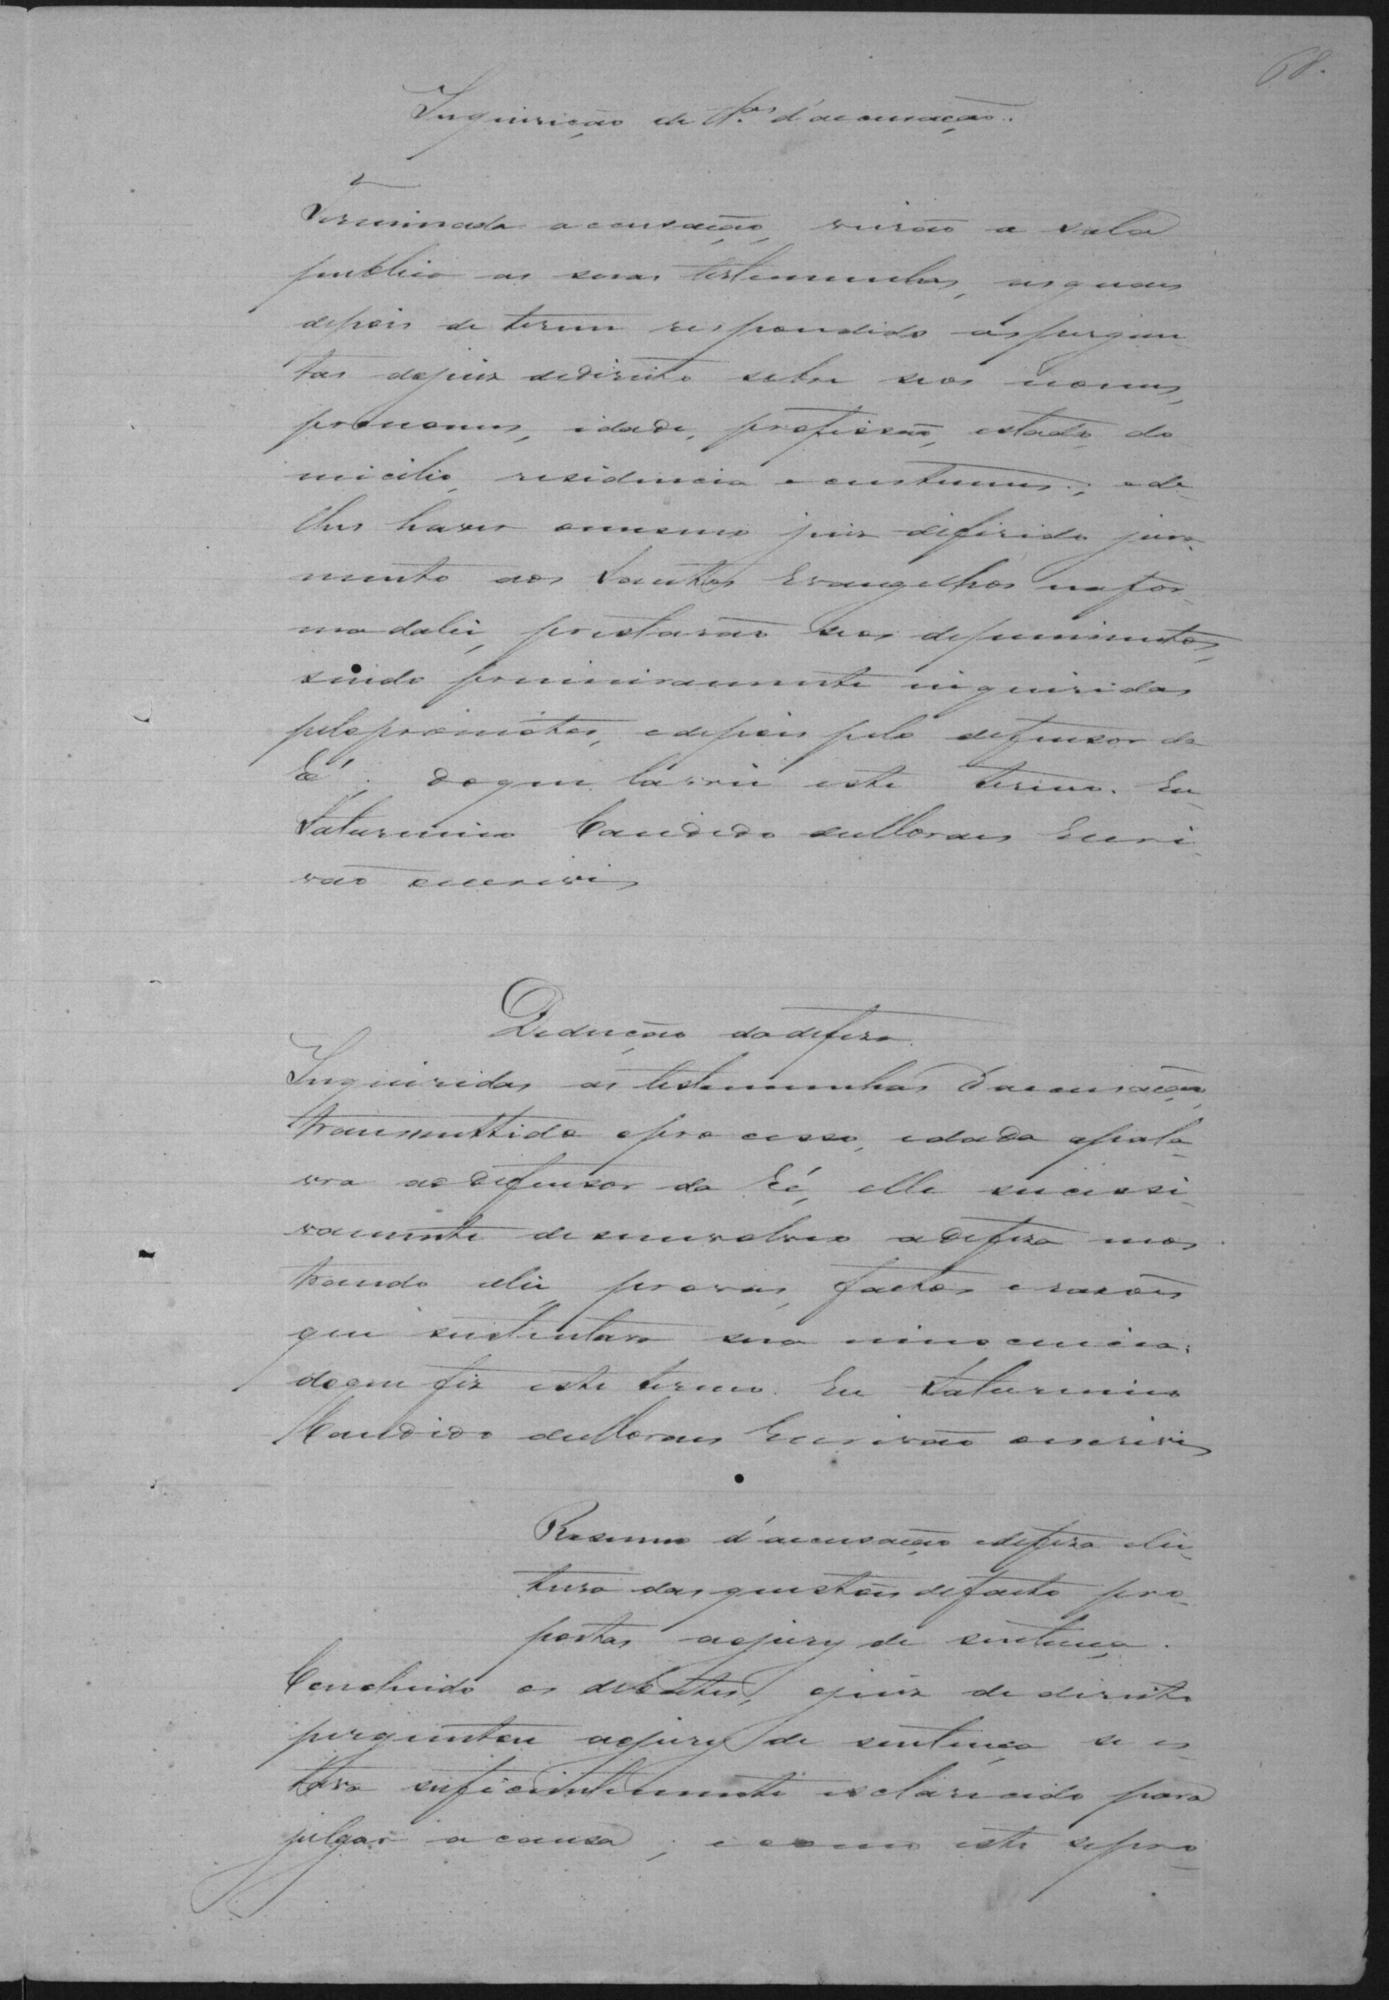 68.
Inquirição de t.as d'accusação.
Terminada accusação, vierão a sala
publica as suas testemunhas, as quaes
depois de terem respondido as pergun
tas do juiz de direito sobre seos nomes,
pronomes, idade, profissão, estado, do
micilio, residencia e custumes; e de
lhes haver o mesmo juiz diferido jura
mento aos Santos Evangelhos na for
ma da lei, prestarão seos depuimentos,
sendo primeiramente inquiridas
pelo promotor, e depois pelo defensor da
Ré. Do que lavrei este termo. Eu
Saturnino Candido de Moraes Escri
vão escrivi
Deducção da defeza.
Inquiridas as testemunhas d'accusação,
transmittido o processo, e dada a pala
vra ao defensor da Ré, elle successi
vamente desenvolveo a defeza mos
trando a lei, provas, factos e rasões
que sustentava sua innocencia;
do que fiz este termo. Eu Saturnino
Candido de Moraes Escrivão o escrivi
Resumo d'accusação e defeza e lei
tura das questões de facto pro
postas ao jury de sentença.
Concluido os debattes, o juiz de direito
perguntou ao jury de sentença se es
tava suficientemente esclarecido para
julgar a causa; e como este se pro